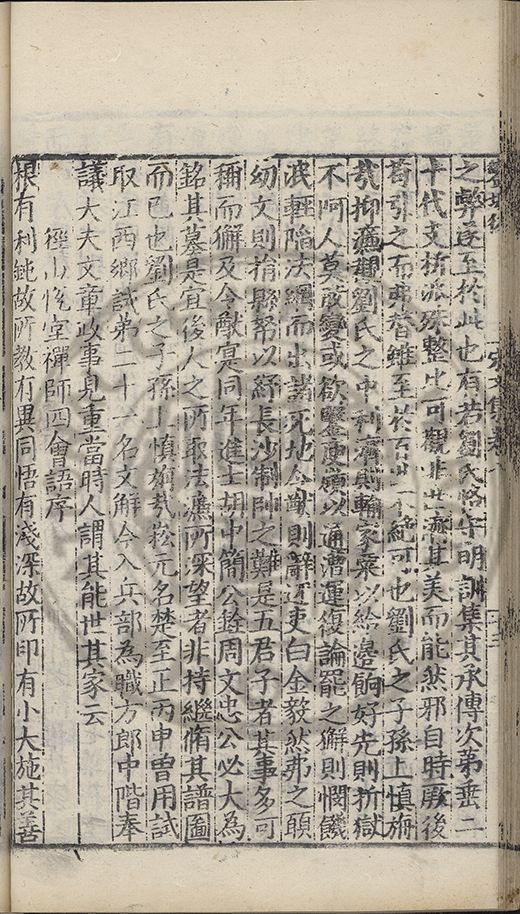 之弊遂至於此也有若劉氏恪守明訓集其承傳次第垂二
十代支析派殊整比可觀非世濟其美而能然邪自時厥後
苟引之而弗替雖至於百世不絕可也劉氏之子孫上慎旃
㢤抑濂觀劉氏之中利濟輸家粟以給邊餉好先則折獄
不阿人莫敢變或欲鑿庾嶺以通漕運復論罷之獬則憫饑
氓輕陷法網而出諸死地令猷則辭逻吏白金毅然弗之顧
幼文則捐縣帑以紓長沙制帥之難是五君子者其事多可
稱而獬及令猷寔同年進士胡中簡公銓周文忠公必大為
銘其墓是宜後人之所取法濂所深望者非持繼脩其譜圖
而已也劉氏之子孫上慎旃㢤崧元名楚至正丙申曾用試
取江西鄉試弟二十一名文解今入兵部為職方郎中階奉
議大夫文章政事見重當時人謂其能世其家云
徑山悅堂禪師四會語序
根有利鈍故所教有異同悟有淺深故所印有小大施其善